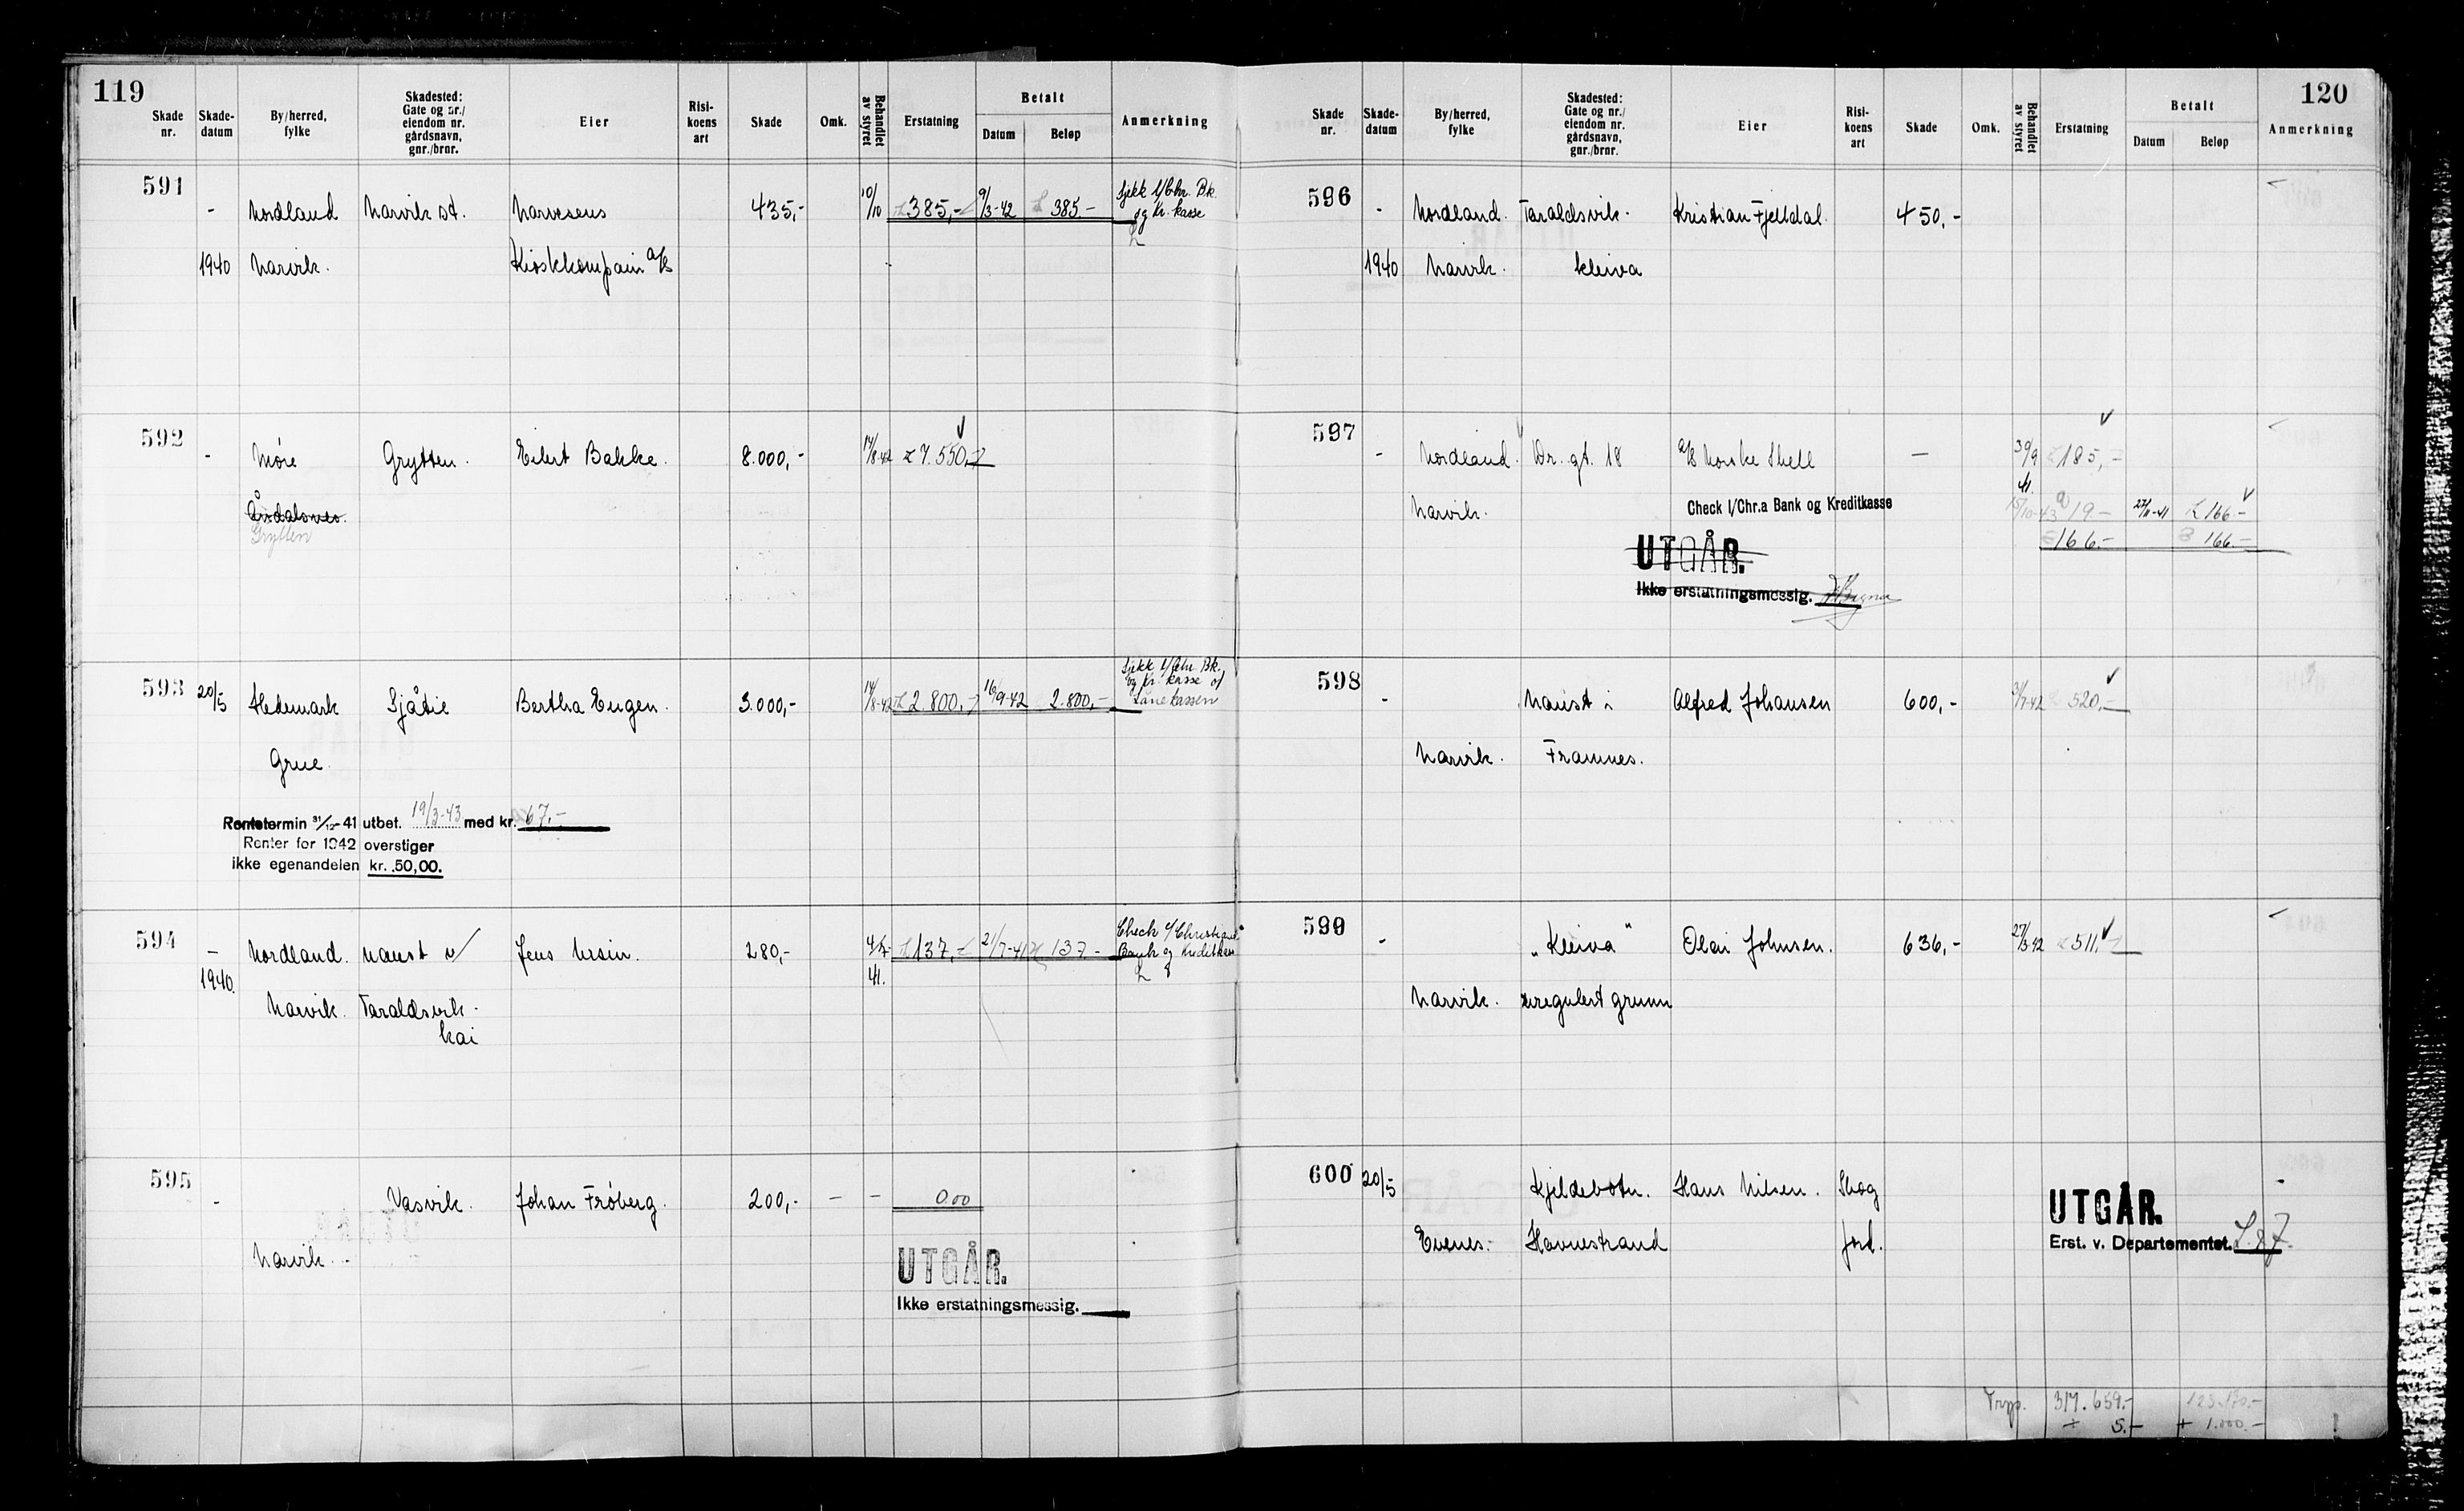 119
Skade nr. Skade-datum By/herred, fylke Skadested: Gate og nr./ eiendom nr. gårdsnavn, gnr./brnr. Eier Risi-koens art Skade Omk. Behandlet av styret Erstatning Betalt Datum Beløp Anmerkning
591 - Nordland Narvik st. Narvesens 435,- 10/10 385,- 9/3-42 385.- Sjekk l/Chr. Bk. og Kr. kasse
1940 Narvik. Kioskkompani A/S
592 - Møre Grytten. Eilert Bakke. 8.000,- 14/8-42 7.550,-
Åndalsnes.
Grytten
593 20/5 Hedemark Sjåtie Bertha Engen. 3.000,- 14/8-42 2.800,- 16/9-42 2.800,- Sjekk l/Chr. Bk. og Kr. kasse of Lånekassen
Grue
Rentetermin 31/12-41 utbet. 19/3-43 med kr. 67.-
Renter for 1942 overstiger
ikke egenandelen kr. 50,00.
594 - Nordland. naust v/ Jens Ursin. 280,- 4/7- 137,- 21/7-41 137- Check l/Christiania Bank og Kreditkasse
1940. 41.
Narvik. Taraldsvik-
kai
595 - Vasvik. Johan Frøberg. 200,- - - 0.00
Narvik.
UTGÅR.
Ikke erstatningsmessig.
120
Skade nr. Skade-datum By/herred, fylke Skadested: Gate og nr./ eiendom nr. gårdsnavn, gnr./brnr. Eier Risi-koens art Skade Omk. Behandlet av styret Erstatning Betalt Datum Beløp Anmerkning
596 - Nordland. Taraldsvik- Kristian Fjelldal. 450,-
1940 Narvik. kleiva
597 - Nordland. Dr. gt. 18 A/S Norske Shell - 30/9 185,-
41.
Narvik. Check l/Chr.a Bank og Kreditkasse 15/10-43 19- 27/11-41 166-
166.- 166.-
UTGÅR.
Ikke erstatningsmessig.
598 - Naust i Alfred Johansen 600,- 31/7-42 520,-
Narvik. Framnes.
599 - "Kleiva" Olai Johnsen. 636,- 27/3-42 511,-
Narvik. uregulert grunn
600 20/5 Kjeldebotn. Hans Nilsen. Skog
Evenes. Havnestrand Jord.
UTGÅR.
Erst. v. Departementet.
317.659.- 123.170.-
+ 5.- + 1.000.-